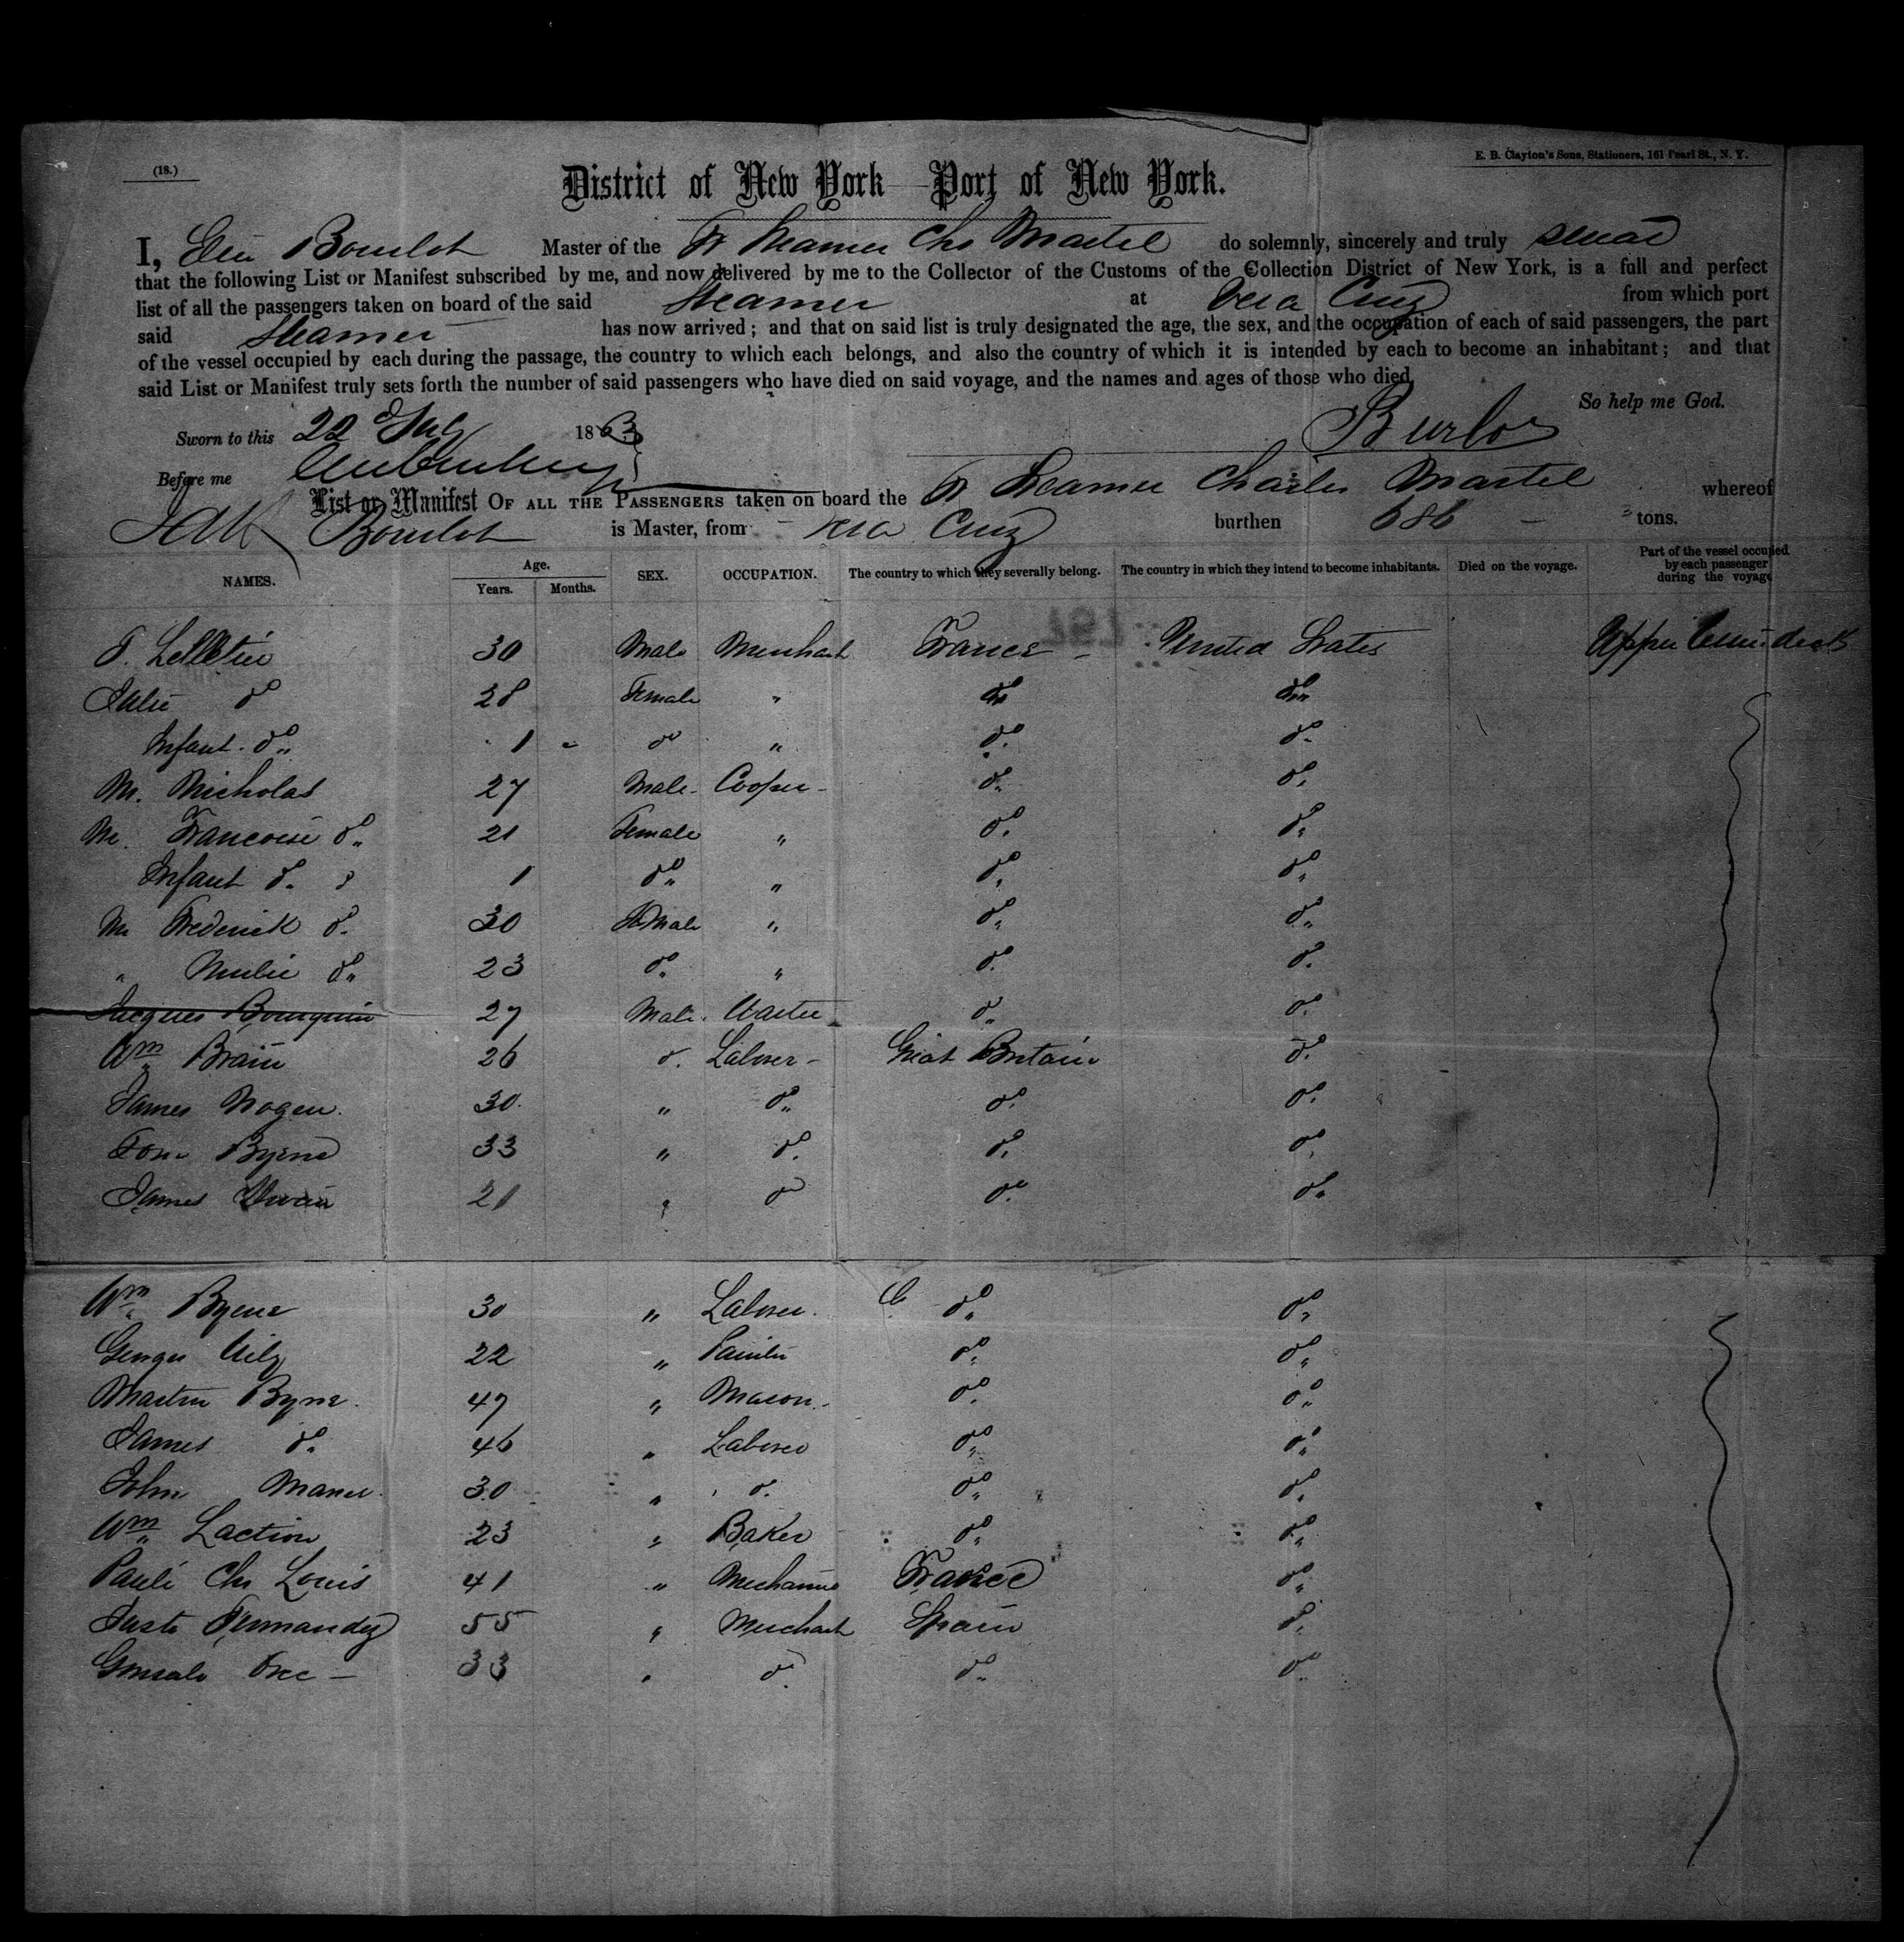 (18.)
E. B. Clayton's Sons, Stationers, 161 Pearl St., N. Y.
District of New York—Port of New York.
I, Bourlot Master of the Fr Steamer Chs Martel do solemnly, sincerely and truly swear
that the following List or Manifest subscribed by me, and now delivered by me to the Collector of the Customs of the Collection District of New York, is a full and perfect
list of all the passengers taken on board of the said Steamer at Vera Cruz from which port
said Steamer has now arrived; and that on said list is truly designated the age, the sex, and the occupation of each of said passengers, the part
of the vessel occupied by each during the passage, the country to which each belongs, and also the country of which it is intended by each to become an inhabitant; and that
said List or Manifest truly sets forth the number of said passengers who have died on said voyage, and the names and ages of those who died.
So help me God.
Sworn to this 22 July 1863
Before me
List or Manifest OF ALL THE PASSENGERS taken on board the Fr Steamer Charles Martel whereof
Bourlot is Master, from Vera Cruz burthen 686 tons.
NAMES. Age. Years. Months. SEX. OCCUPATION. The country to which they severally belong. The country in which they intend to become inhabitants. Died on the voyage. Part of the vessel occupied by each passenger during the voyage
30 Male Merchant France United States Upper deck
Julie do 28 Female " do do
Infant do 1 do " do do
M. Nicholas 27 Male Cooper do do
M. Francoise do 21 Female " do do
Infant do 1 do " do do
M Frederick do 30 Male " do do
" do 23 do " do do
Jacques Bourquin 27 Male do do
Wm Brain 26 do Laborer Great Britain do
James Hogen 30 " do do do
Tom Byrne 33 " do do do
James 21 " do do do
Wm Byrne 30 " Laborer do do
George 22 " Painter do do
Martin Byrne 47 " Mason do do
James do 46 " Laborer do do
John Maner 30 " do do do
Wm Laction 23 " Baker do do
Pauli Chs Louis 41 " Mechanic France do
Justo Fernandez 55 " Merchant Spain do
Gonsalo 33 " do do do